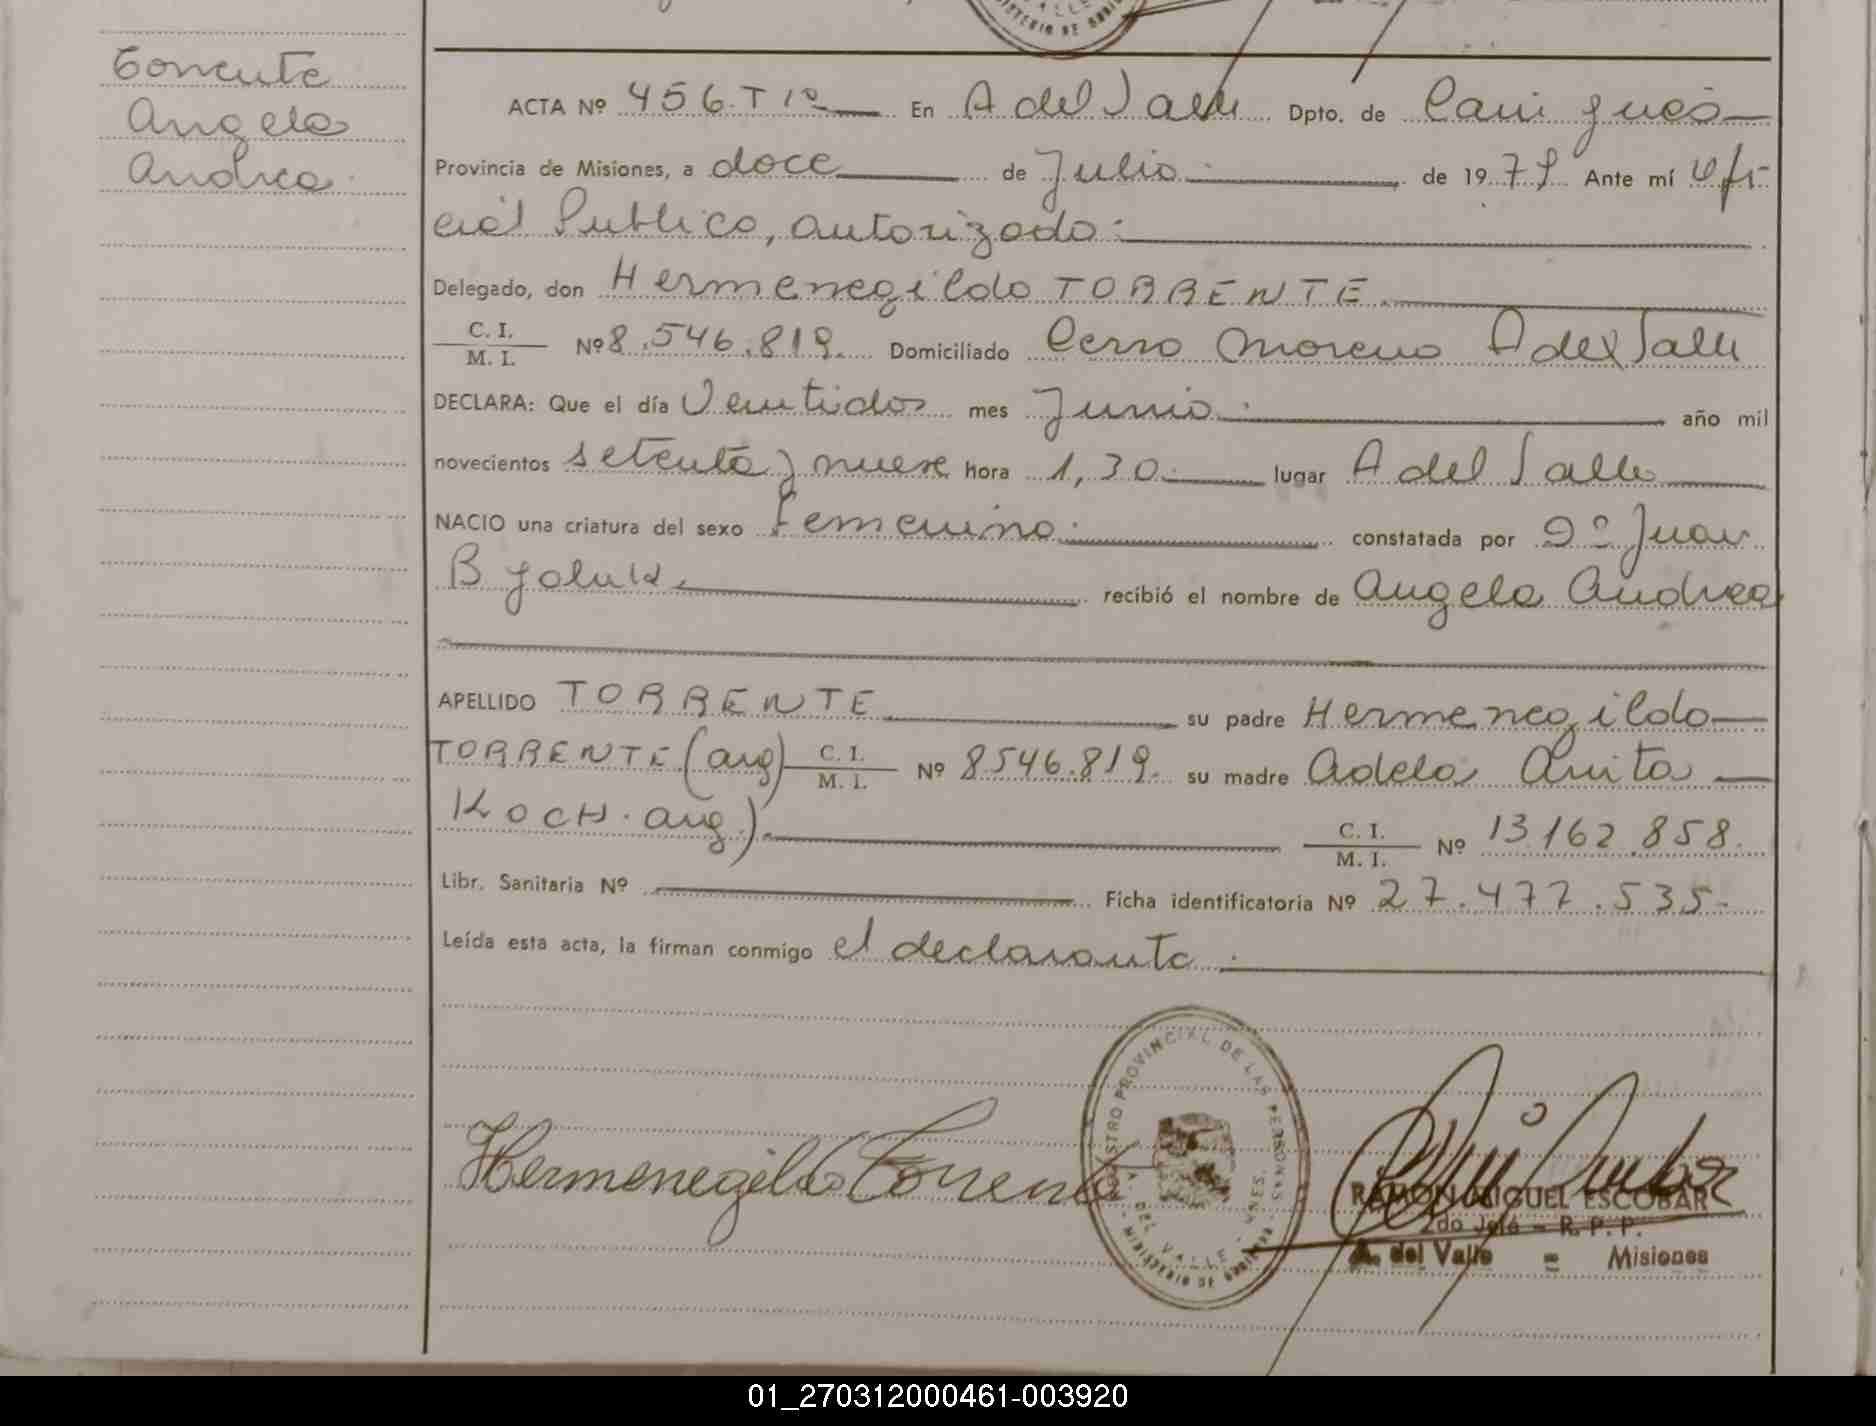 VALLE
MINISTERIO DE GOBIERNO
Torrente
Angela
Andrea
ACTA Nº 456. T 1º En A del Valle Dpto. de Cainguás
Provincia de Misiones, a doce de Julio de 1979 Ante mí Ofi
cial Publico, autorizado:
Delegado, don Hermenegildo TORRENTE.
C. I.
M. I. Nº 8.546.819. Domiciliado Cerro Moreno A del Valle
DECLARA: Que el día Ventidos mes Junio. año mil
novecientos setenta y nueve hora 1,30 lugar A del Valle
NACIO una criatura del sexo femenino. constatada por Dº Juan
B recibió el nombre de Angela Andrea
APELLIDO TORRENTE su padre Hermenegildo
TORRENTE (arg) C. I.
M. I. Nº 8546.819. su madre Adela Anita
KOCH. arg). C. I.
M. I. Nº 13.162.858.
Libr. Sanitaria Nº Ficha identificatoria Nº 27.477.535.
Leída esta acta, la firman conmigo el declarante.
Hermenegildo Torrente
REGISTRO PROVINCIAL DE LAS PERSONAS
A. DEL VALLE - MNES.
MINISTERIO DE GOBIERNO
RAMON MIGUEL ESCOBAR
2do Jefe - R. P. P.
A. del Valle = Misiones
01_270312000461-003920